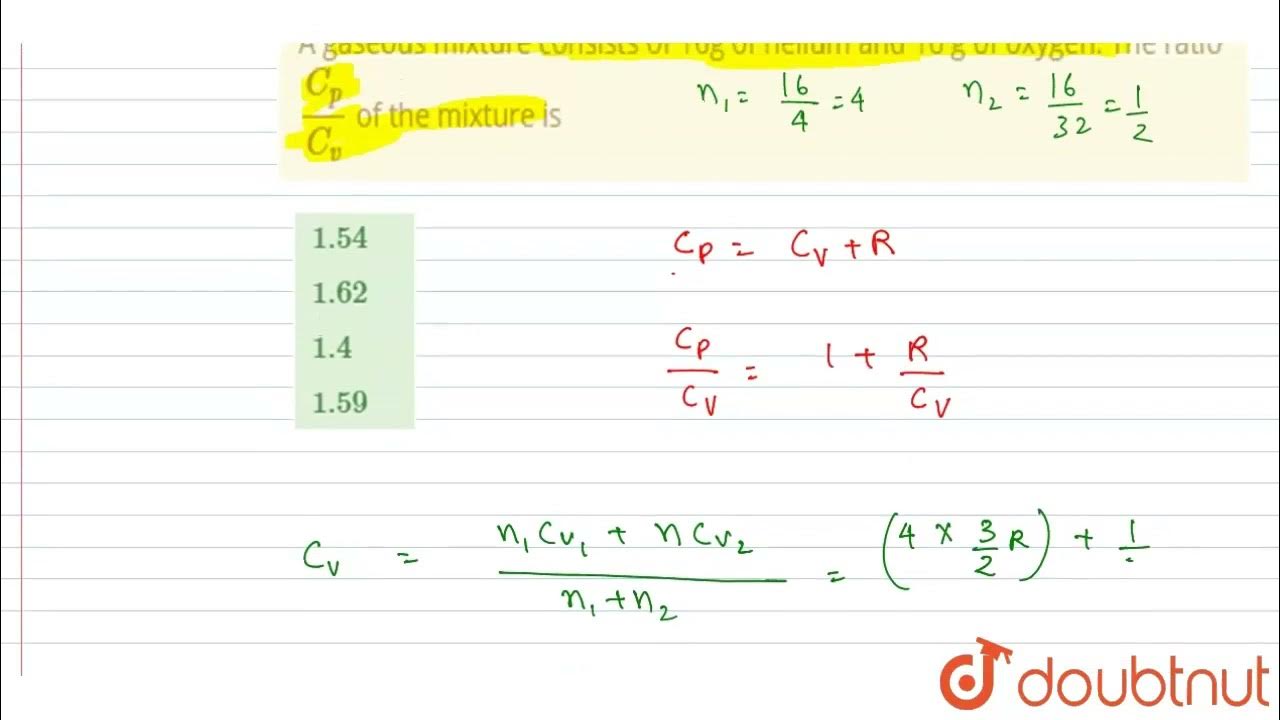 A gaseous mixture consists of 16g of helium and 16 g of oxygen. The ratio
C_p / C_v of the mixture is
n₁ = 16/4 = 4
n₂ = 16/32 = 1/2
1.54
1.62
1.4
1.59
C_P = C_V + R
C_P / C_V = 1 + R / C_V
C_V = (n₁Cv₁ + nCv₂) / (n₁ + n₂) = (4 × 3/2 R) + 1/
doubtnut